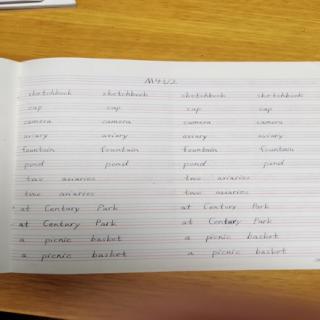 M4U2
sketchbook sketchbook sketchbook sketchbook
cap cap cap cap
camera camera camera camera
aviary aviary aviary aviary
fountain fountain fountain fountain
pond pond pond pond
two aviaries two aviaries
two aviaries two aviaries
at Century Park at Century Park
at Century Park at Century Park
a picnic basket a picnic basket
a picnic basket a picnic basket